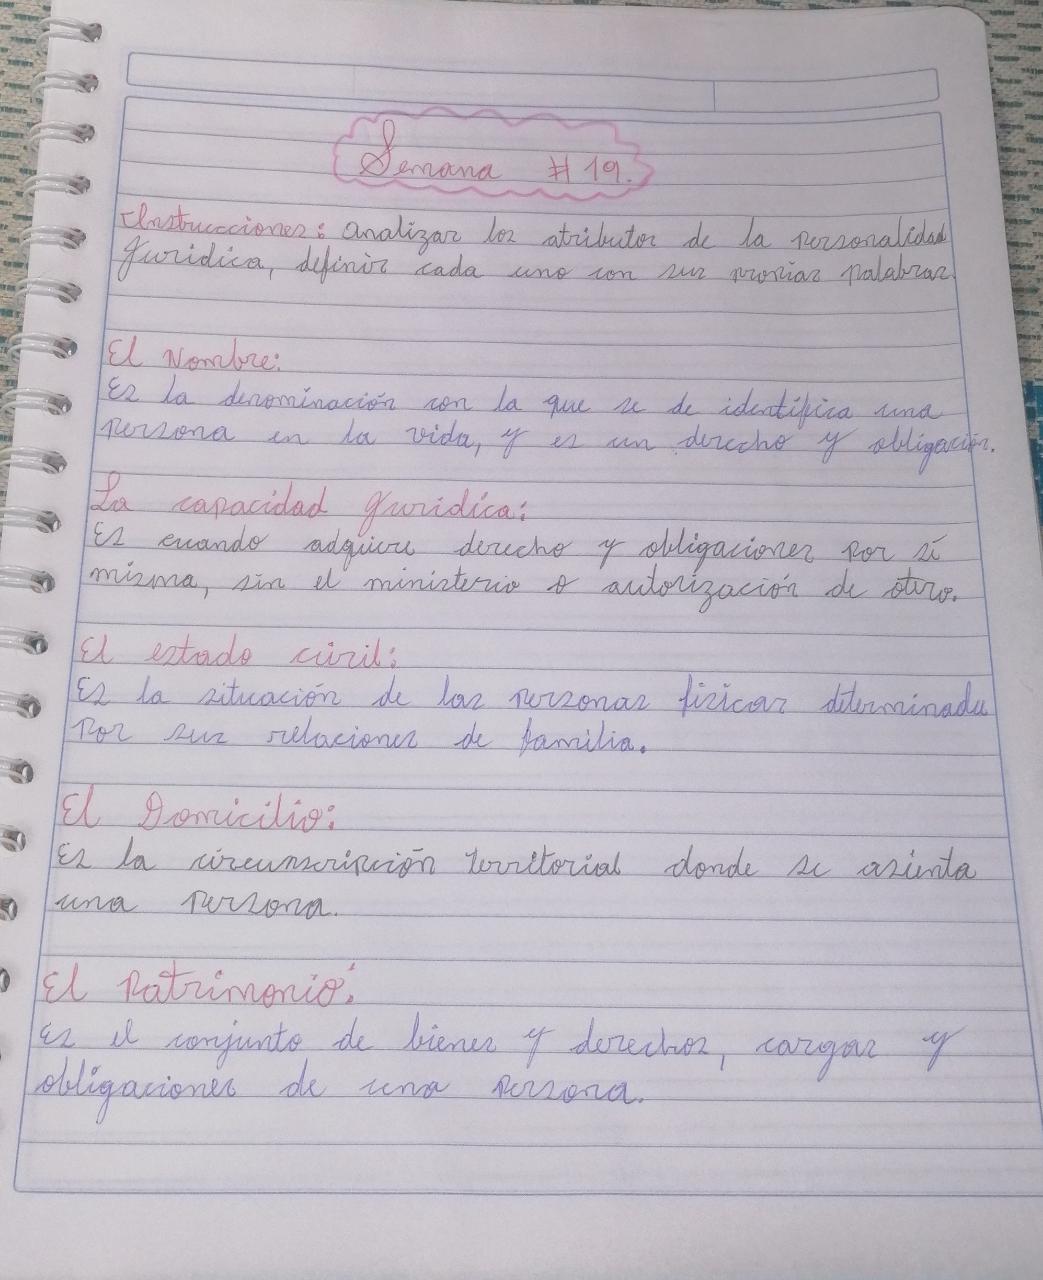 Semana # 19.
Instrucciones: analizar los atributos de la personalidad
Juridica, definir cada uno con sus propias palabras.
El Nombre:
Es la denominación con la que se de identifica una
persona en la vida, y es un derecho y obligación.
La capacidad Juridica:
Es cuando adquire derecho y obligaciones por sí
misma, sin el ministerio o autorización de otro.
El estado civil:
Es la situación de las personas fisicas determinada
por sus relaciones de familia.
El Domicilio:
Es la circunscripción territorial donde se asienta
una persona.
El Patrimonio:
Es el conjunto de bienes y derechos, cargas y
obligaciones de una persona.